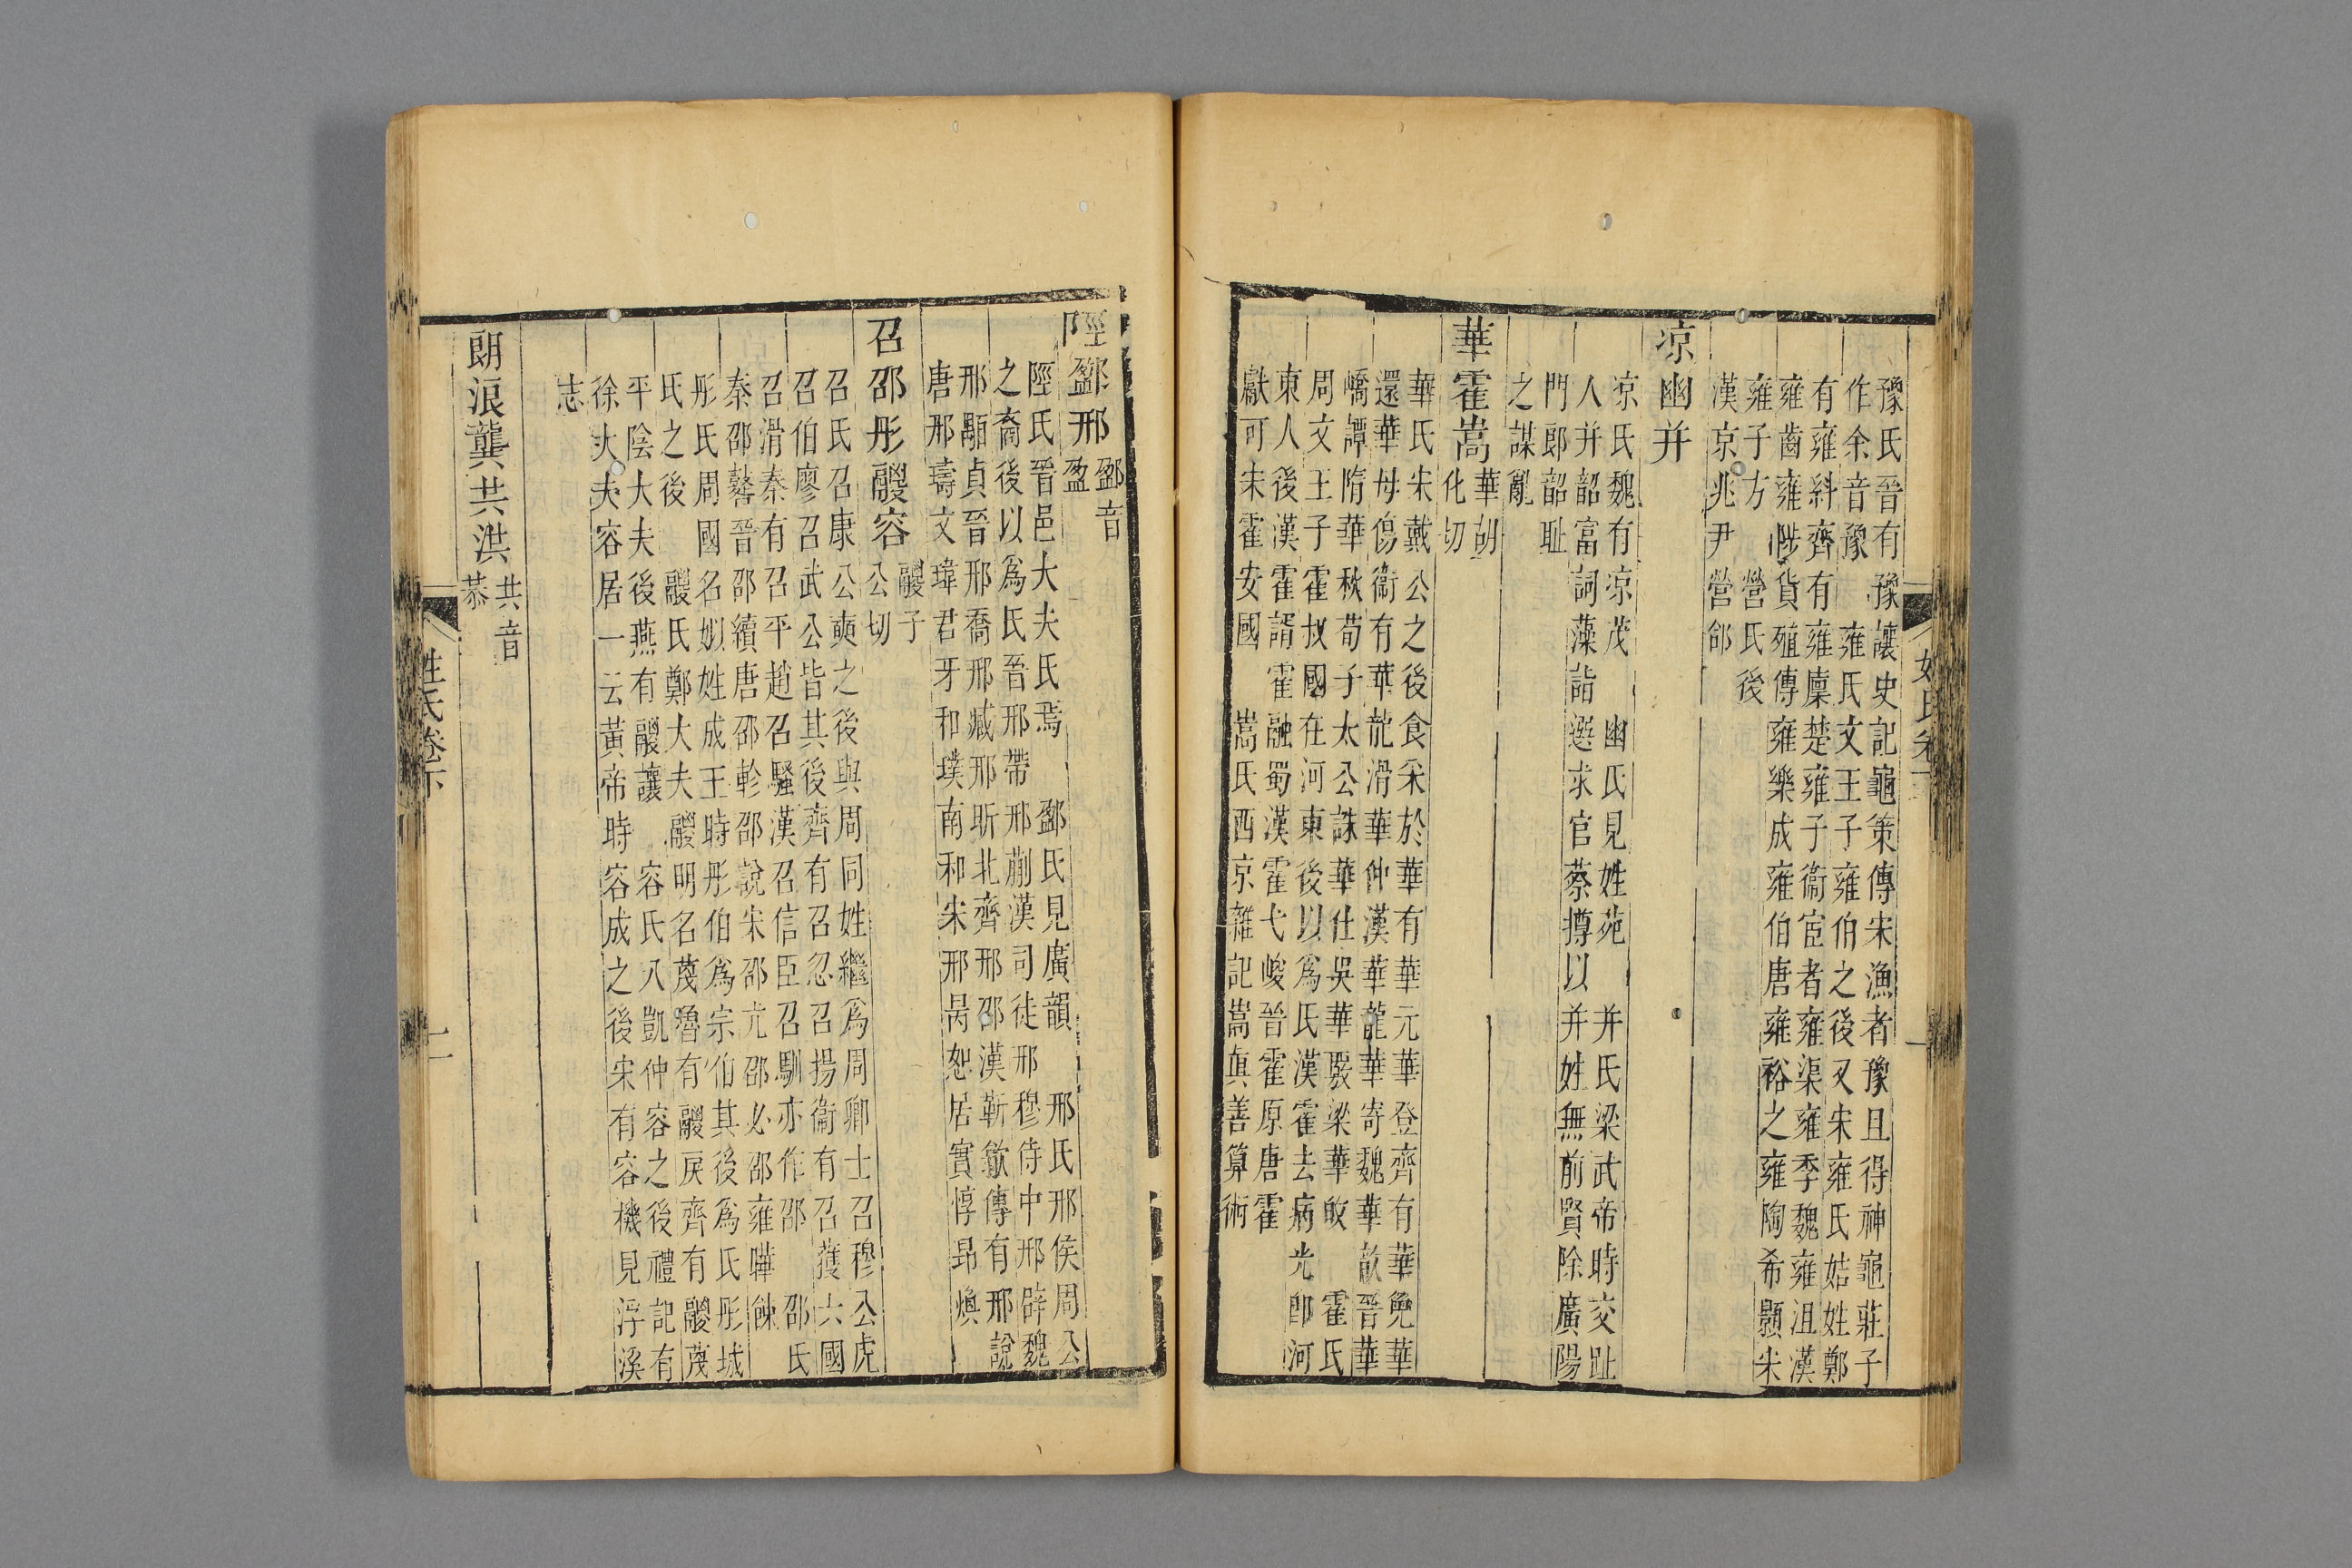 豫氏晉有　豫讓史記龜策傳宋漁者豫且得神龜莊子
作余音豫　雍氏文王子雍伯之後又宋雍氏姞姓鄭
有雍糾齊有雍廩楚雍子衞宦者雍渠雍季魏雍沮漢
雍齒雍陗貨殖傳雍樂成雍伯唐雍裕之雍陶希顥宋
雍子方　營氏後
漢京兆尹營郃
凉幽并
凉氏魏有凉茂　幽氏見姓苑　并氏梁武帝時交趾
人并韶富詞藻詣選求官蔡撙以并姓無前賢除廣陽
門郎韶耻
之謀亂
華霍嵩
華胡
化切
華氏宋戴公之後食采於華有華元華登齊有華免華
還華母傷衞有華龍滑華仲漢華龍華寄魏華歆晉華
嶠譚隋華秋荀子太公誅華仕吳華覈梁華皎　霍氏
周文王子霍叔國在河東後以爲氏漢霍去病光卽河
東人後漢霍諝霍融蜀漢霍弋峻晉霍原唐霍
獻可宋霍安國　嵩氏西京雜記嵩眞善算術
陘鄒邢
音
盈
陘氏晉邑大夫氏焉　氏見廣韻　邢氏邢侯周公
之裔後以爲氏晉邢帶邢蒯漢司徒邢穆侍中邢辟魏
邢顒貞晉邢喬邢臧邢昕北齊邢邵漢靳歙傳有邢說
唐邢璹文瑋君牙和璞南和宋邢昺恕居實惇昻煥
召邵彤鬷容
鬷子
公切
召氏召康公奭之後與周同姓繼爲周卿士召穆公虎
召伯廖召武公皆其後齊有召忽召揚衞有召獲六國
召滑秦有召平趙召騷漢召信臣召馴亦作邵　邵氏
秦邵謷晉邵續唐邵軫邵說宋邵亢邵必邵雍曄餗
彤氏周國名姒姓成王時彤伯爲宗伯其後爲氏彤城
氏之後　鬷氏鄭大夫鬷明名蔑魯有鬷戾齊有鬷蔑
平陰大夫後燕有鬷讓　容氏八凱仲容之後禮記有
徐大夫容居一云黃帝時容成之後宋有容機見浯溪
志
朗浪龔共洪
共音
恭
姓氏卷下